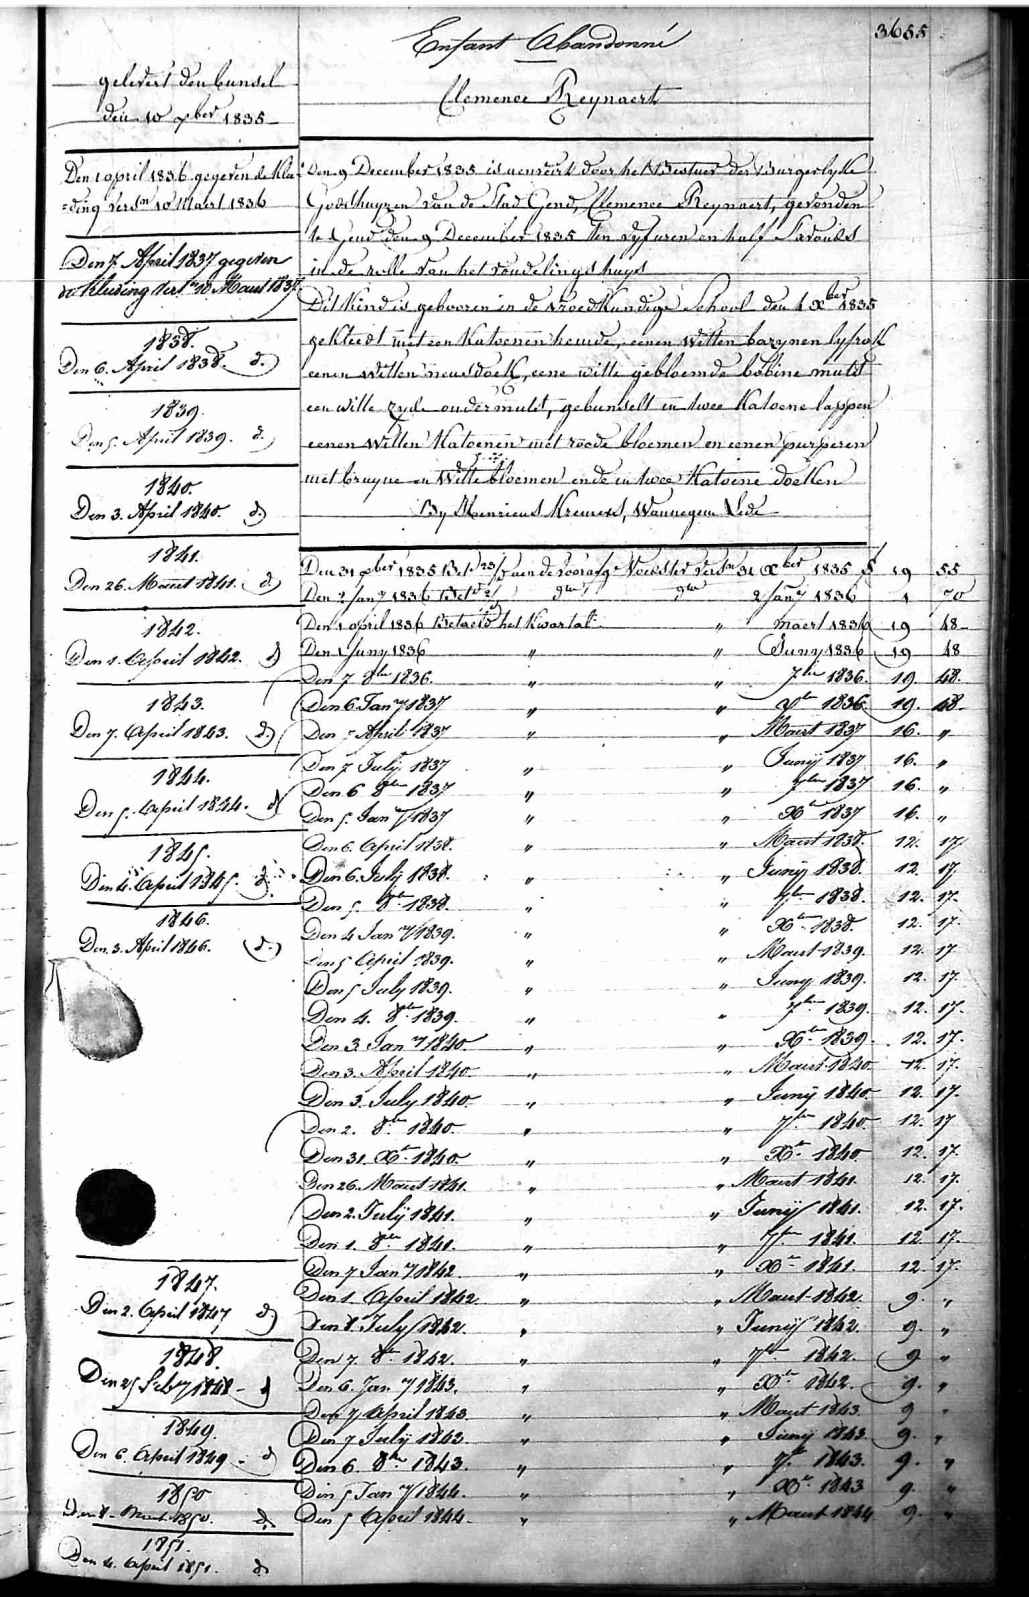 3655
Enfant Abandonné
Clemence Reynaert
gelevert den bunsel
den 10 xber 1835
Den 1 april 1836 gegeven de klee
=ding versn 10 Maert 1836
Den 7. April 1837 gegeven
de kleeding versn 10 Maert 1837
1838.
Den 6. April 1838. d.
1839.
Den 5. April 1839. d.
1840.
Den 3. April 1840. d.
1841.
Den 26. Maert 1841. d
1842.
Den 1. April 1842. d
1843.
Den 7. April 1843. d.
1844.
Den 5. April 1844. d
1845.
Den 4. April 1845. d.
1846.
Den 3. April 1846. d.
1847.
Den 2. April 1847 d
1848.
Den 25 feby 1848 - d
1849.
Den 6. April 1849 - d
1850
Den 8. Maert 1850. d.
1851.
Den 4. April 1851. d.
Den 9 December 1835 is aenveirt door het Bestuer der Burgerlyke
Godshuyzen van de Stad Gend, Clemence Reynaert, gevonden
te Gend den 9 December 1835 ten vyf uren en half s'avonds
in de rolle van het vondelings huys
Dit Kind is gebooren in de vroedkundige School den 4 xber 1835
gekleedt met een Katoenen hemde, eenen witten bazynen lyfrok
eenen witten neusdoek, eene witte gebloemde bobine muts
een witte zyde ondermuts, gebunselt in twee Katoene lappen
eenen witten Katoenen met roode bloemen en eenen purperen
met bruyne en Witte bloemen ende in twee Katoene doeken
By Menricus , Wannegem Lede
Den 31 xber 1835 Bet. 23/ aen de voorzge Voedster versn 31 xber 1835 f 19 55
Den 2 Jany 1836 Bet. do do 2 Jany 1836 1 70
Den 1 april 1836 Betaelt het Kwartal " maert 1836 19 48
Den 1 Juny 1836 " " Juny 1836 19 48
Den 7 8ber 1836. " " 7ber 1836. 19 48.
Den 6. Jany 1837 " " Xber 1836. 19. 48
Den 7 April 1837 " " Maert 1837 16. "
Den 7 July 1837 " " Juny 1837 16. "
Den 6 8ber 1837 " " 7ber 1837 16. "
Den 5. Jany 1837 " " Xber 1837 16. "
Den 6. April 1838. " " Maert 1838. 12. 17.
Den 6. July 1838. " " Juny 1838. 12. 17.
Den 5. 8ber 1838. " " 7ber 1838. 12. 17.
Den 4 Jany 1839. " " Xber 1838. 12. 17.
Den 5 April 1839. " " Maert 1839. 12. 17.
Den 5 July 1839. " " Juny 1839. 12. 17.
Den 4. 8ber 1839. " " 7ber 1839. 12. 17.
Den 3. Jany 1840. " " Xber 1839. 12. 17.
Den 3. April 1840. " " Maert 1840. 12. 17.
Den 3. July 1840. " " Juny 1840. 12. 17.
Den 2. 8ber 1840. " " 7ber 1840. 12. 17
Den 31. Xber 1840. " " Xber 1840. 12. 17.
Den 26. Maert 1841. " " Maert 1841. 12. 17.
Den 2. July 1841. " " Juny 1841. 12. 17.
Den 1. 8ber 1841. " " 7ber 1841. 12. 17.
Den 7 Jany 1842 " " Xber 1841. 12. 17.
Den 1. April 1842. " " Maert 1842. 9. "
Den 8. July 1842. " " Juny 1842. 9. "
Den 7. 8ber 1842. " " 7ber 1842. 9 "
Den 6. Jany 1843. " " Xber 1842. 9. "
Den 7 April 1843. " " Maert 1843 9 "
Den 7 July 1843. " " Juny 1843. 9. "
Den 6. 8ber 1843. " " 7ber 1843. 9. "
Den 5 Jany 1844. " " Xber 1843 9 "
Den 5 April 1844. " " Maert 1844 9. "